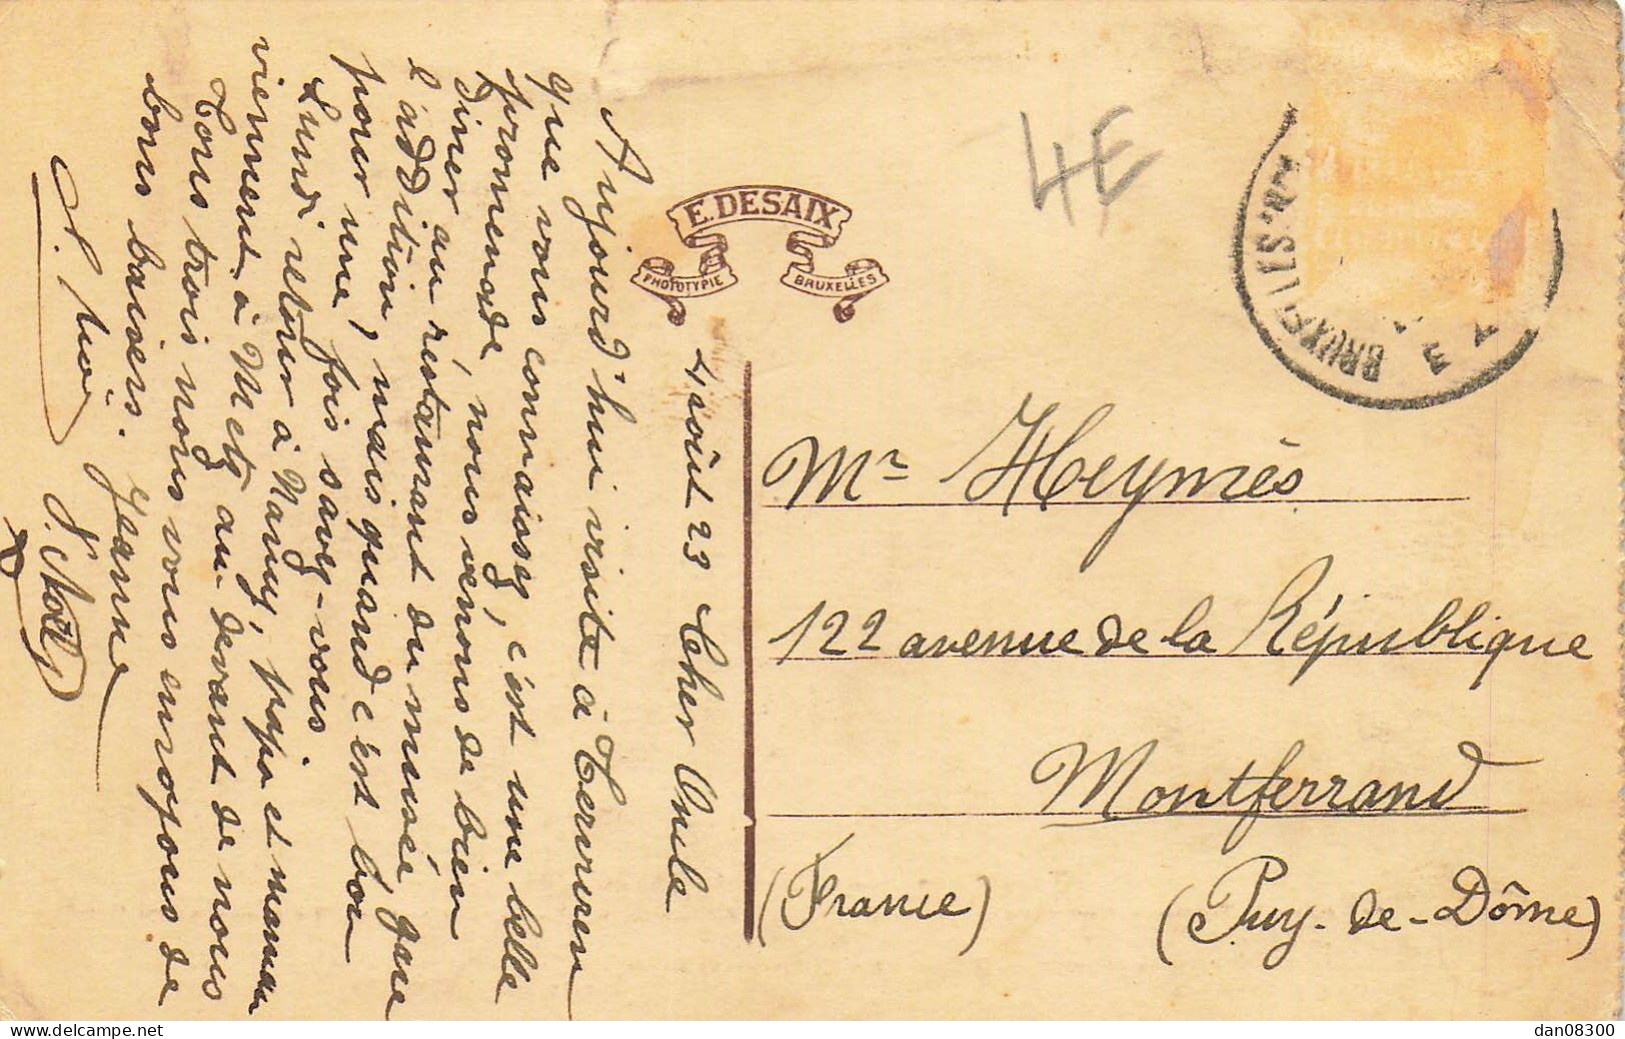 4 août 23 Cher Oncle
Aujourd'hui visite à Tervuren
que vous connaissez, c'est une belle
promenade, nous venons de bien
diner au réstaurant du musée que
l'addition, mais quand c'est bon
pour une fois savez-vous
Lundi retour à Nancy, papa et maman
viennent à Metz au-devant de nous
Tous trois nous vous envoyons de
bons baisers. Jeanne
E. DESAIX
PHOTOTYPIE BRUXELLES
4E
BRUXELLES
Mr Heymès
122 avenue de la République
Montferrand
(France) (Puy-de-Dôme)
www.delcampe.net
dan08300